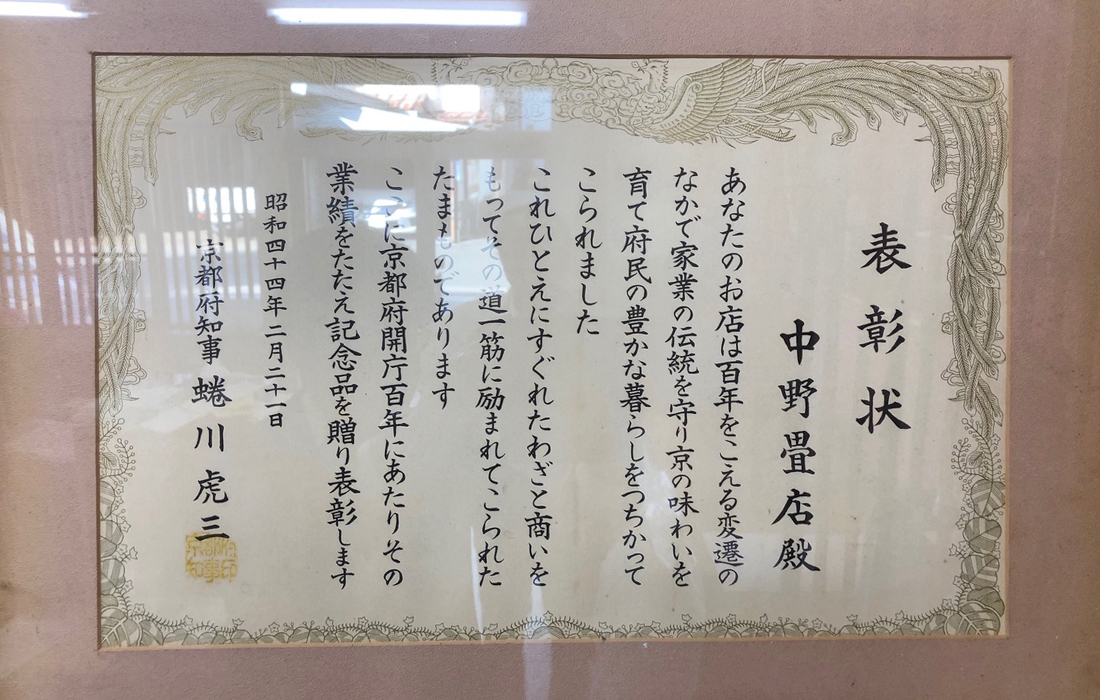 表彰状
中野畳店殿
あなたのお店は百年をこえる変遷の
なかで家業の伝統を守り京の味わいを
育て府民の豊かな暮らしをつちかって
こられました
これひとえにすぐれたわざと商いを
もってその道一筋に励まれてこられた
たまものであります
ここに京都府開庁百年にあたりその
業績をたたえ記念品を贈り表彰します
昭和四十四年二月二十一日
京都府知事 蜷川虎三
京都府知事印